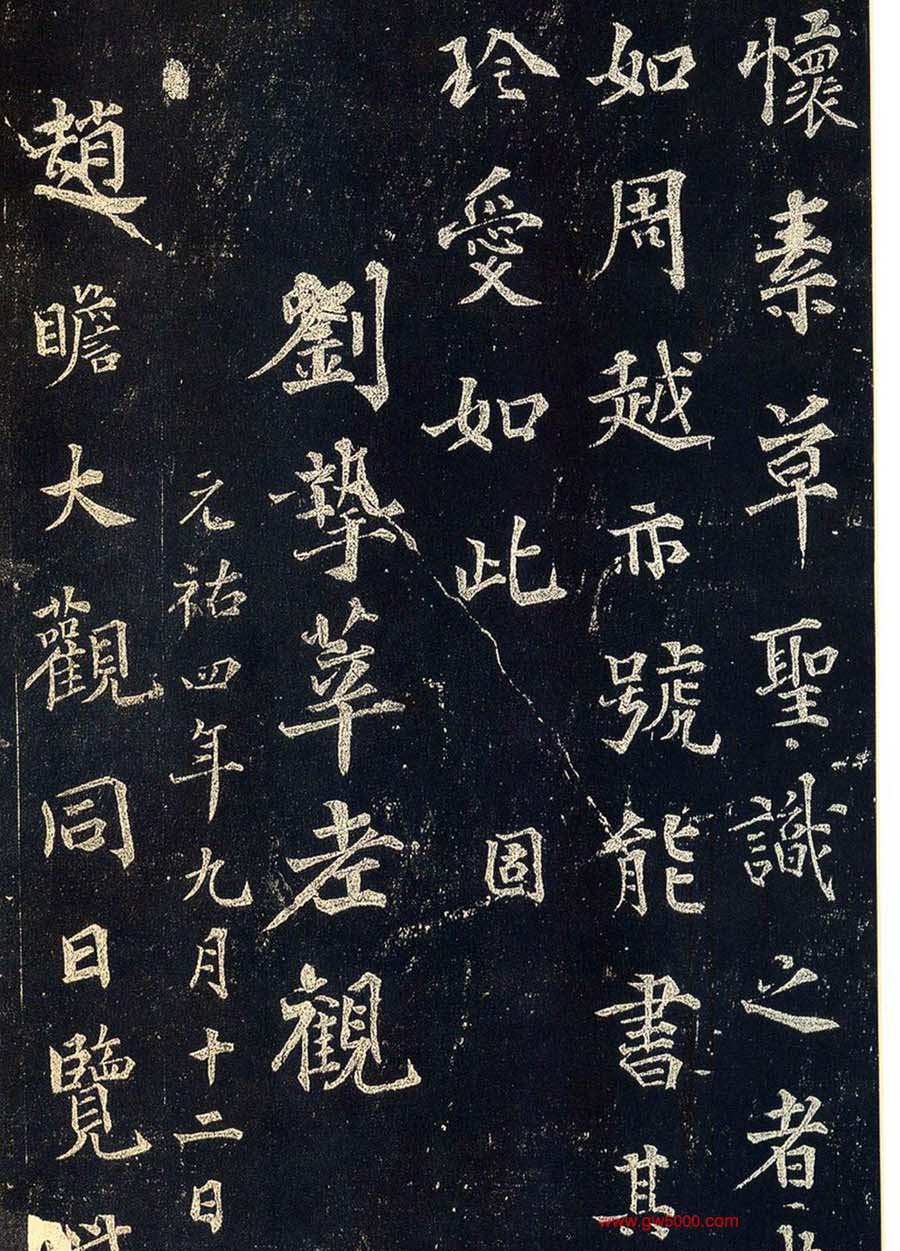 懷素草聖識之者
如周越亦號能書其
珍愛如此 固
劉摯莘老觀
元祐四年九月十二日
趙瞻大觀同日覽
www.gw5000.com